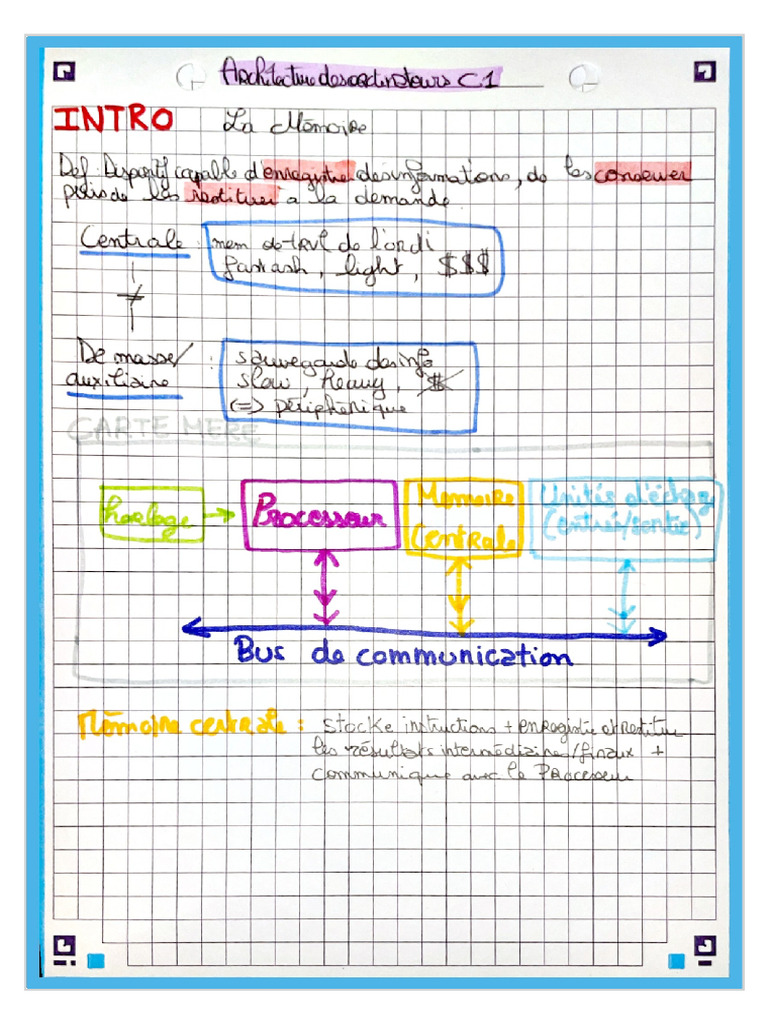 Architecture des ordinateurs C1
INTRO La Mémoire
Def: Dispositif capable d'enregistrer des informations, de les conserver
puis de les restituer à la demande.
Centrale : mem de trvl de l'ordi
, light, $$$
≠
De masse/
auxiliaire : sauvegarde des info
slow, heavy, $
(=> périphérique
CARTE MERE
horloge → Processeur
Mémoire
Centrale
Unités d'échange
(entrée/sortie)
Bus de communication
Mémoire centrale : stocke instructions + enregistre et restitue
les résultats intermédiaires/finaux +
communique avec le Processeur